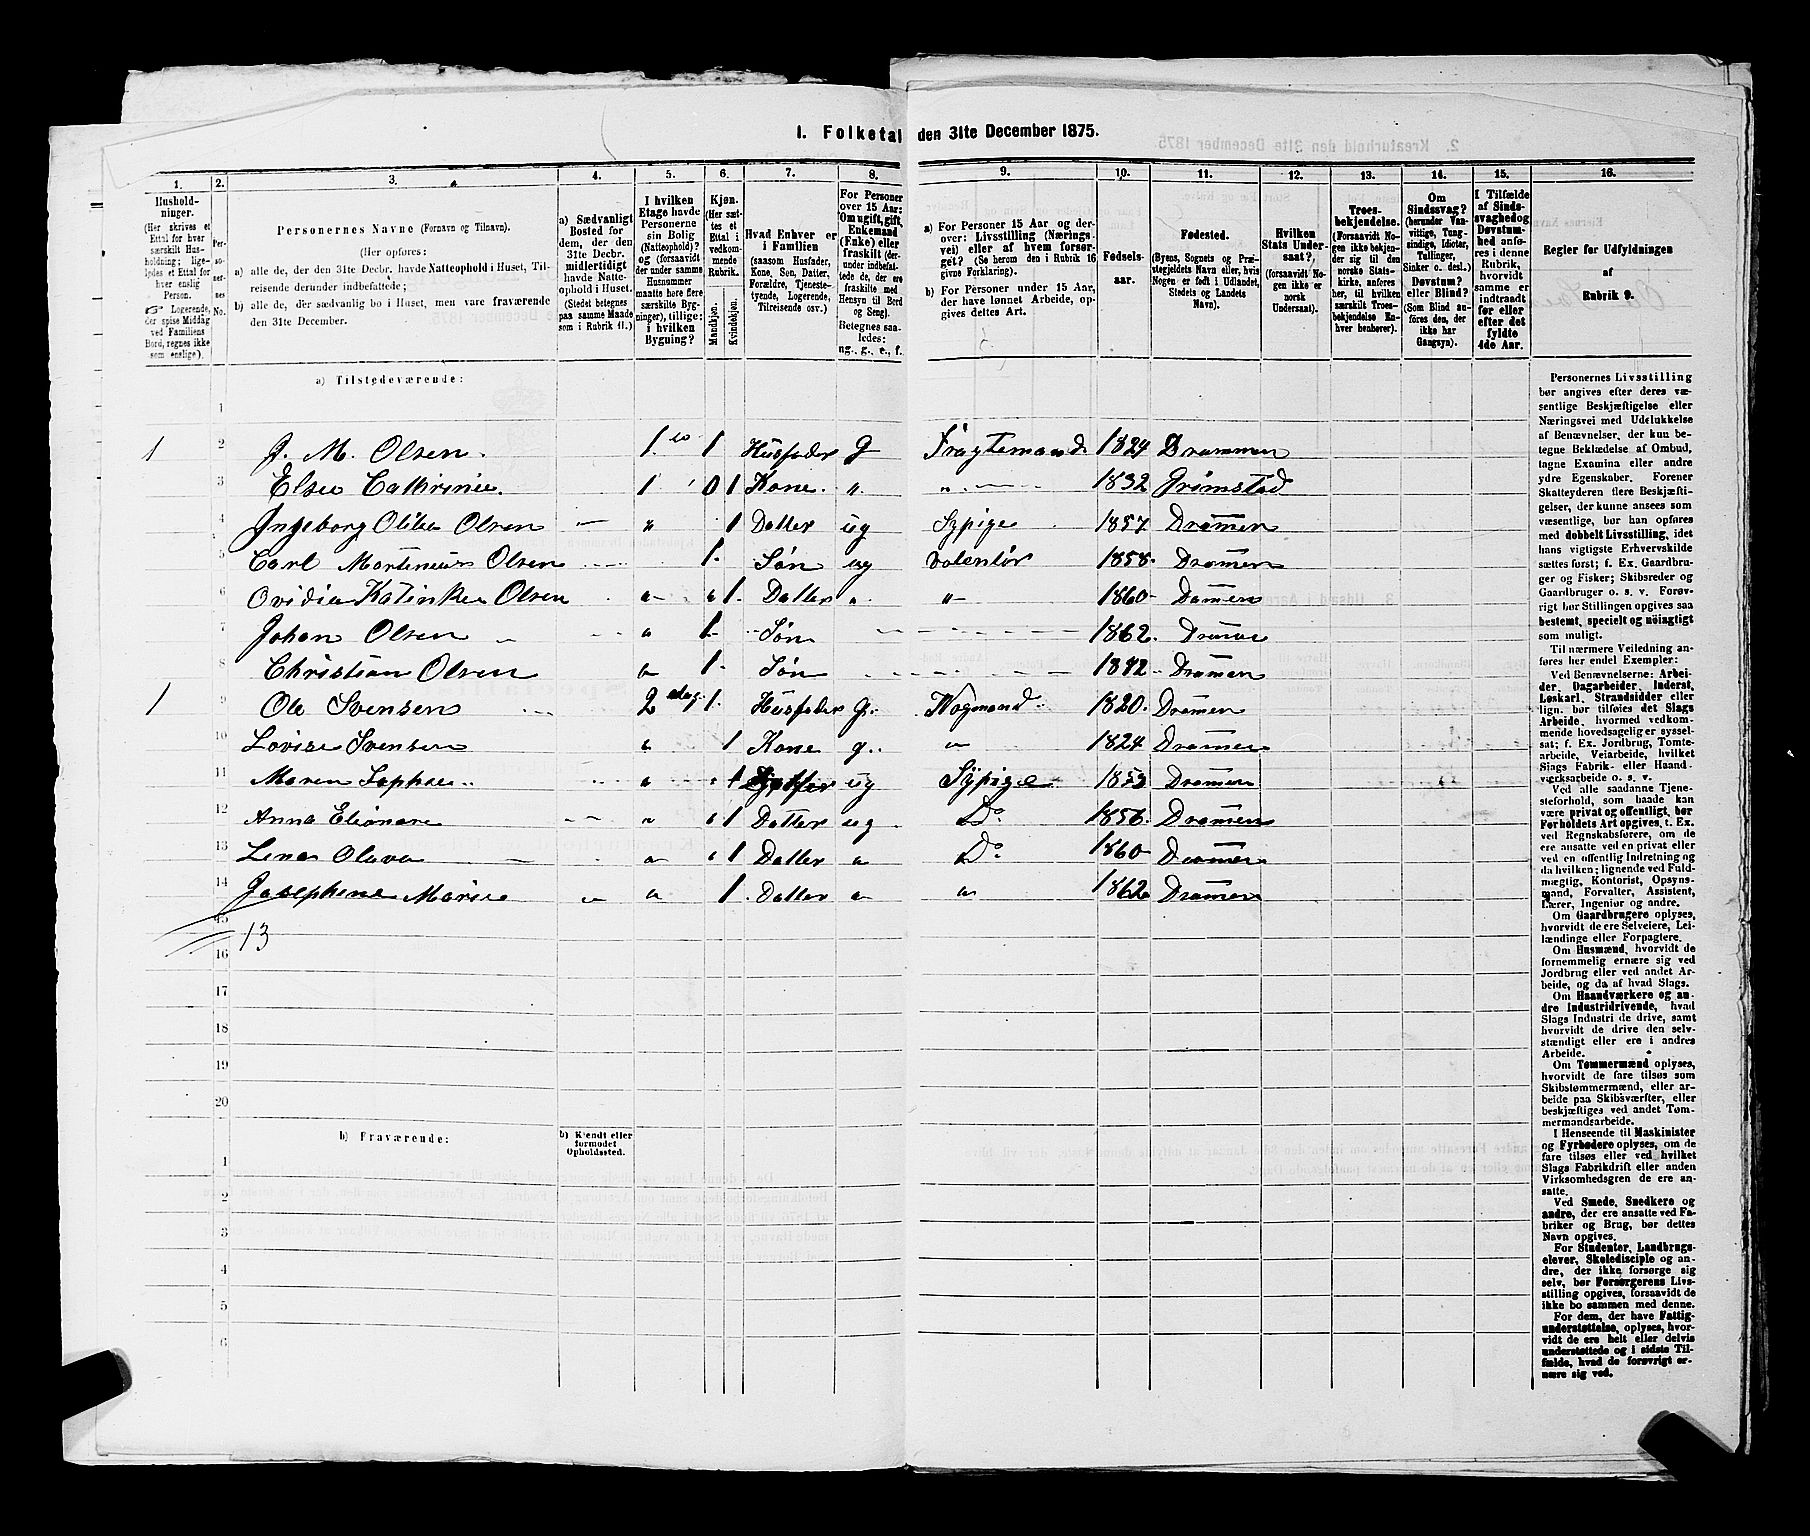 1. Folketal den 31te December 1875.
1.
Husholdninger.
(Her skrives et
Ettal for hver
særskilt Husholdning;
ligeledes et Ettal for
hver enslig
Person.
Logerende,
der spise Middag
ved Familiens
Bord, regnes ikke
som enslige).
2.
Personernes No.
3.
Personernes Navne (Fornavn og Tilnavn).
(Her opføres:
a) alle de, der den 31te Decbr. havde Natteophold i Huset, Tilreisende derunder indbefattede;
b) alle de, der sædvanlig bo i Huset, men vare fraværende
den 31te December.
4.
a) Sædvanligt
Bosted for
dem, der den
31te Decbr.
midlertidigt
havde Natteophold i Huset.
(Stedet betegnes
paa samme Maade
som i Rubrik 11.)
5.
I hvilken
Etage havde
Personerne
sin Bolig
(Natteophold)?
og (forsaavidt
der under samme
Husnummer
maatte høre flere
særskilte Bygninger), tillige:
i hvilken
Bygning?
6.
Kjøn.
(Her sættes et
Ettal i
vedkommende
Rubrik.
Mandkjøn.
Kvindekjøn.
7.
Hvad Enhver er
i Familien
(saasom Husfader,
Kone, Søn, Datter,
Forældre, Tjenestetyende, Logerende,
Tilreisende osv.)
8.
For Personer
over 15 Aar:
Om ugift, gift,
Enkemand
(Enke) eller
fraskilt (derunder indbefattede de, der ere
fraskilte med
Hensyn til Bord
og Seng).
Betegnes saaledes:
ug., g., e., f.
9.
a) For Personer 15 Aar og derover: Livsstilling (Næringsvei) eller af hvem forsørget? (Se herom den i Rubrik 16
givne Forklaring).
b) For Personer under 15 Aar,
der have lønnet Arbeide, opgives dettes Art.
10.
Fødselsaar.
11.
Fødested.
(Byens, Sognets og Præstegjeldets Navn eller, hvis
Nogen er født i Udlandet,
Stedets og Landets
Navn).
12.
Hvilken
Stats Undersaat?
(forsaavidt Nogen ikke er
norsk
Undersaat).
13.
Troesbekjendelse.
(Forsaavidt Nogen ikke bekjender sig til den
norske Statskirke, anføres
her, til hvilken
særskilt Troesbekjendelse Enhver henhører).
14.
Om
Sindssvag?
(herunder Vanvittige, Tungsindige, Idioter,
Tullinger,
Sinker o. desl.)
Døvstum?
eller Blind?
(Som Blind anføres den, der
ikke har
Gangsyn).
15.
I Tilfælde
af Sindssvaghed og
Døvstumhed anføres i denne
Rubrik,
hvorvidt
samme er
indtraadt
før eller
efter det
fyldte
4de Aar.
16.
Regler for Udfyldningen
af
Rubrik 9.
a) Tilstedeværende:
1
1 2 J. M. Olsen. 1. 1 Husfader g Fragtemand 1824 Drammen
3 Else Cathrine. 1 0 1 Kone. „ „ 1832 Grimstad
4 Ingeborg Olebe Olsen — „ 1 Datter ug Sypige 1857 Dramen
5 Carl Martinius Olsen 1. Søn ug Volentør 1858. Dramen
6 Ovidia Katinka Olsen „ „ 1. Datter „ „ 1860 Damen
7 Johan Olsen „ 1. Søn 1862.
8 Christian Olsen „ 1. Søn Dramen
1 9 Ole Svensen 2 etag. 1. Husfader g. 1820. Dramen
10 Lovise Svensen „ 1 Kone g. „ 1824 Dramen
11 Maren Sophie „ „ 1 Datter ug Sypige 1853 Dramen
12 Anna Elionore „ „ 1 Datter ug Do 1856. Dramen
13 Lena Olava „ „ 1 Datter „ Do 1860 Dramen
14 Josephine Marie „ „ 1 Datter „ „ 1862 Dramen
15
13
16
17
18
19
20
b) Fraværende:
b) Kjendt eller
formodet
Opholdssted.
1
2
3
4
5
6
Personernes Livsstilling
bør angives efter deres væsentlige Beskjæftigelse eller
Næringsvei med Udelukkelse
af Benævnelser, der kun betegne Beklædelse af Ombud,
tagne Examina eller andre
ydre Egenskaber. Forener
Skatteyderen flere Beskjæftigelser, der kunne ansees som
væsentlige, bør han opføres
med dobbelt Livsstilling, idet
hans vigtigste Erhvervskilde
sættes først; f. Ex. Gaardbruger og Fisker; Skibsreder og
Gaardbruger o. s. v. Forøvrigt bør Stillingen opgives saa
bestemt, specielt og nöiagtigt
som muligt.
Til nærmere Veiledning anføres her endel Exempler:
Ved Benævnelserne: Arbeider, Dagarbeider, Inderst,
Løskarl, Strandsidder eller
lign. bør tilføies det Slags
Arbeide, hvormed vedkommende hovedsagelig er sysselsat; f. Ex. Jordbrug, Tomtearbeide, Veiarbeide, hvilket
Slags Fabrik- eller Haandværksarbeide o. s. v.
Ved alle saadanne Tjenesteforhold, som baade kan
være privat og offentligt, bør
Forholdets Art opgives, t. Ex.
ved Regnskabsførere, om de
ere ansatte ved en privat eller
ved en offentlig Indretning og
da hvilken; lignende ved Fuldmægtig, Kontorist, Opsynsmand, Forvalter, Assistent,
Lærer, Ingeniør og andre.
Om Gaardbrugere oplyses,
hvorvidt de ere Selveiere, Leilændinge eller Forpagtere.
Om Husmænd, hvorvidt de
fornemmelig ernære sig ved
Jordbrug eller ved andet Arbeide, og da af hvad Slags.
Om Haandværkere og andre Industridrivende, hvad
Slags Industri de drive, samt
hvorvidt de drive den selvstændigt eller ere i andres
Arbeide.
Om Tømmermænd oplyses,
hvorvidt de fare tilsøs som
Skibstømmermænd, eller arbeide paa Skibsværfter, eller
beskjæftiges ved andet Tømmermandsarbeide.
I Henseende til Maskinister
og Fyrbødere oplyses, om de
fare tilsøs eller ved hvilket
Slags Fabrikdrift eller anden
Virksomhedsgren de ere ansatte.
Ved Smede, Snedkere og
andre, der ere ansatte ved Fabriker og Brug, bør dettes
Navn opgives.
For Studenter, Landbrugselever, Skoledisciple og andre, der ikke forsørge sig
selv, bør Forsørgerens Livsstilling opgives, forsaavidt de
ikke bo sammen med denne.
For dem, der have Fattigunderstøttelse, oplyses, hvorvidt de ere helt eller delvis
understøttede og i sidste Tilfælde, hvad de forøvrigt ernære sig ved.